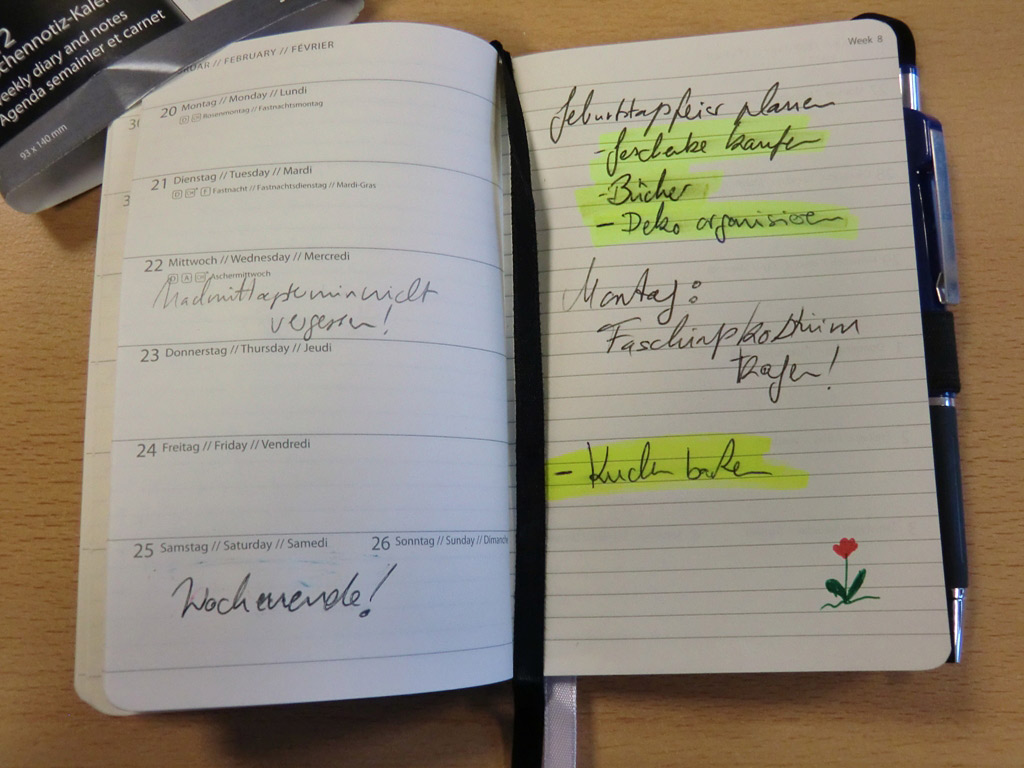 2
chennotiz-Kale
eekly diary and notes
Agenda semainier et carnet
93 x 140 mm
RUAR // FEBRUARY // FÉVRIER
20 Montag // Monday // Lundi
Rosenmontag // Fastnachtsmontag
21 Dienstag // Tuesday // Mardi
D CH F Fastnacht // Fastnachtsdienstag // Mardi-Gras
22 Mittwoch // Wednesday // Mercredi
D A CH Aschermittwoch
Nachmittagstermin nicht
vergessen!
23 Donnerstag // Thursday // Jeudi
24 Freitag // Friday // Vendredi
25 Samstag // Saturday // Samedi
26 Sonntag // Sunday // Dimanche
Wochenende!
Week 8
Geburtstagsfeier planen
- Geschenke kaufen
- Bücher
- Deko organisieren
Montag:
Faschingskostüm
tragen!
- Kuchen backen